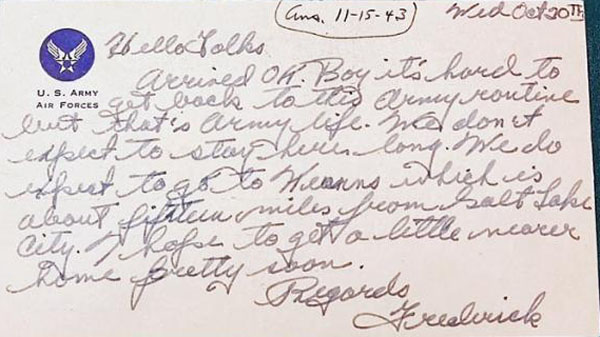 (Ans. 11-15-43)
Wed Oct 20TH
Hello Folks
U. S. ARMY
AIR FORCES
Arrived OK. Boy it's hard to
get back to this Army routine
but that's Army life. We don't
expect to stay here long. We do
expect to go to which is
about fifteen miles from Salt Lake
City. I hope to get a little nearer
home pretty soon.
Regards
Frederick